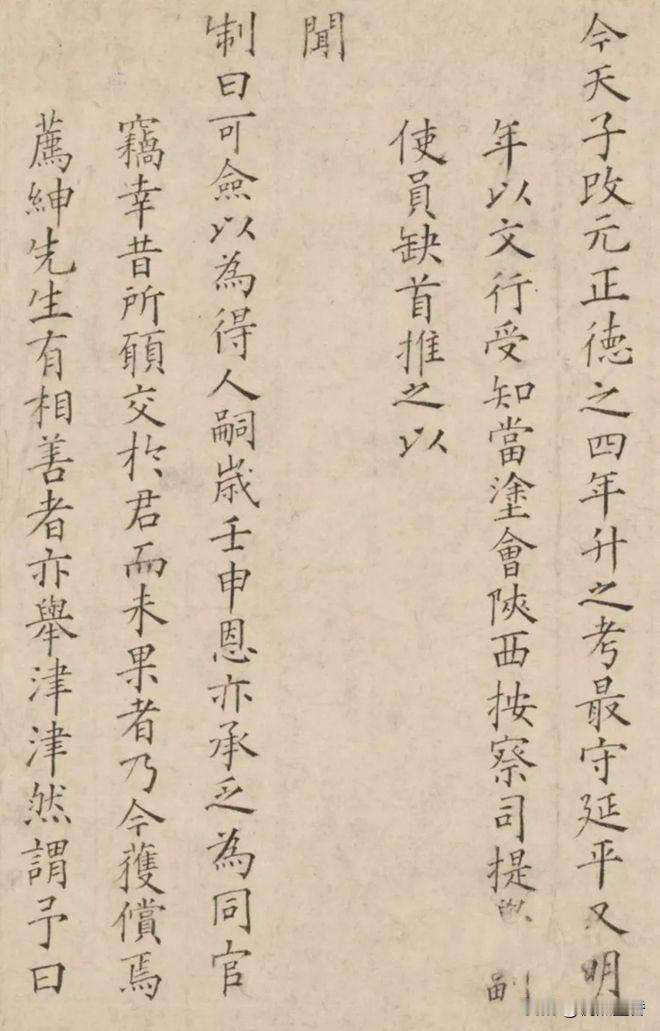 今天子改元正德之四年升之考最守延平又明
年以文行受知當塗會陝西按察司提副
使員缺首推之以
聞
制曰可僉以為得人嗣歲壬申恩亦承乏為同官
竊幸昔所願交於君而未果者乃今獲償焉
薦紳先生有相善者亦舉津津然謂予曰